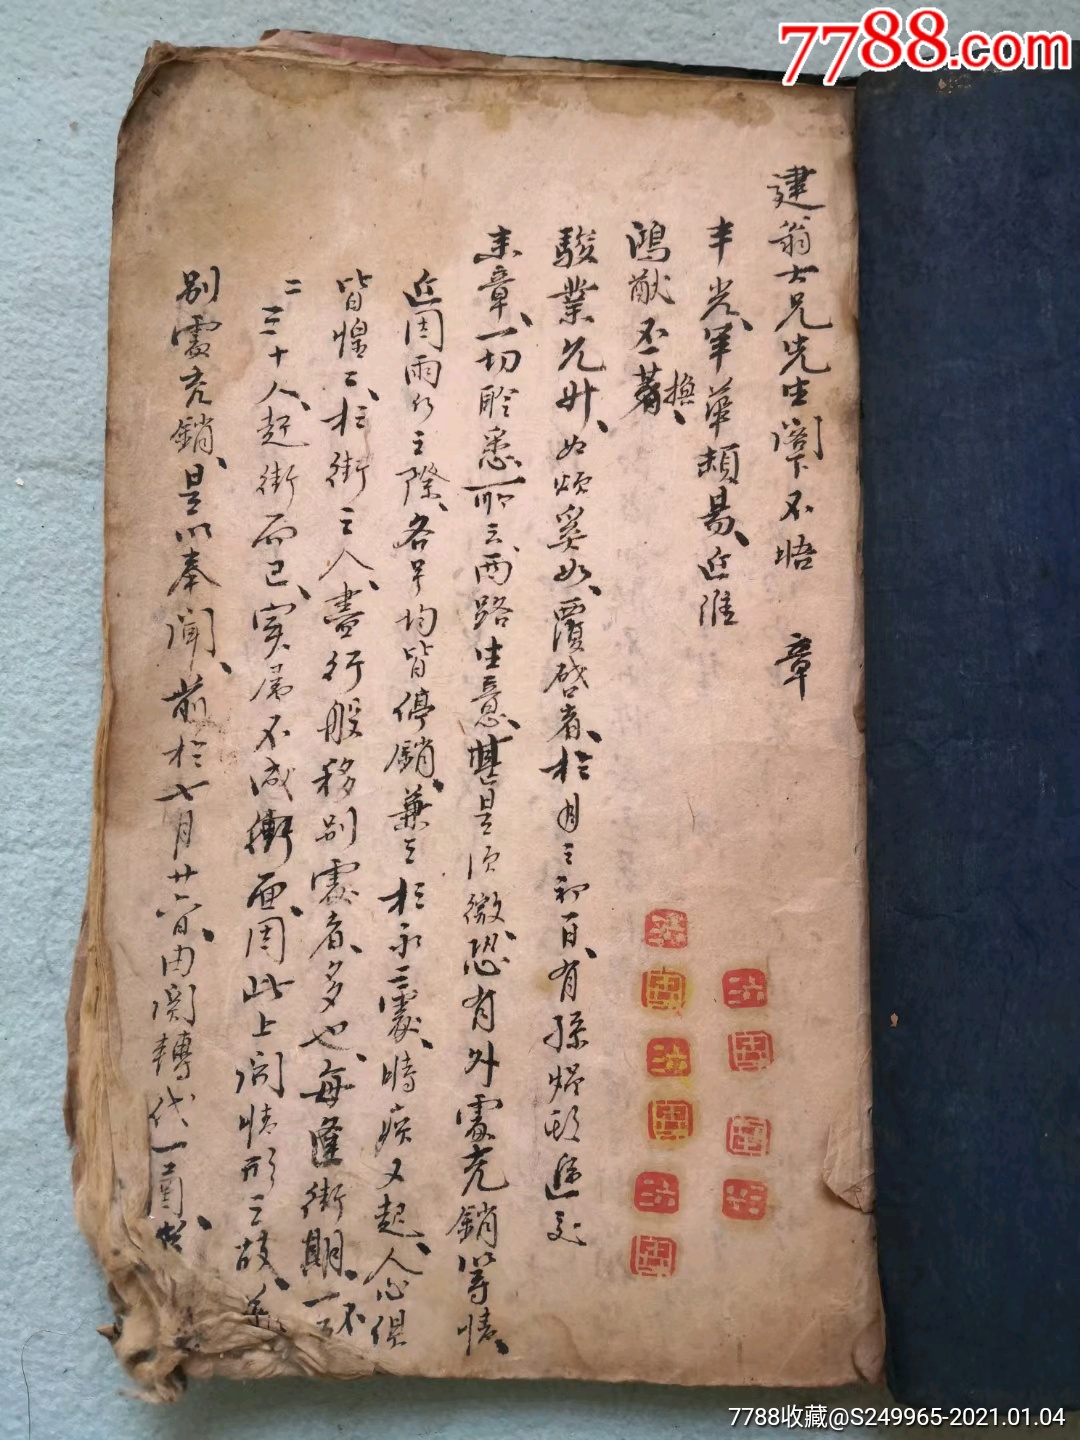 7788.com
建翁士兄先生閣下不晤 章
丰光畢華頻易近維
鴻猷丕著
駿業允升如頌奚如覆啓者於月之初百有孫 遞到
来章一切聆悉所云西路生意甚是須微恐有外處充銷等情
近因雨水之際各早均皆停銷兼之於永二處時疾又起人心俱
皆惶二於街之人盡行般移別處者多也每逢街期不
二三十人赶街而已实屬不成街面因此上問情形之故
別處充銷是以奉聞前於七月廿六日由関轉代一
7788收藏@S249965-2021.01.04